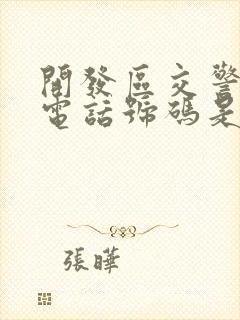 開發區交警
電話號碼是
張曄